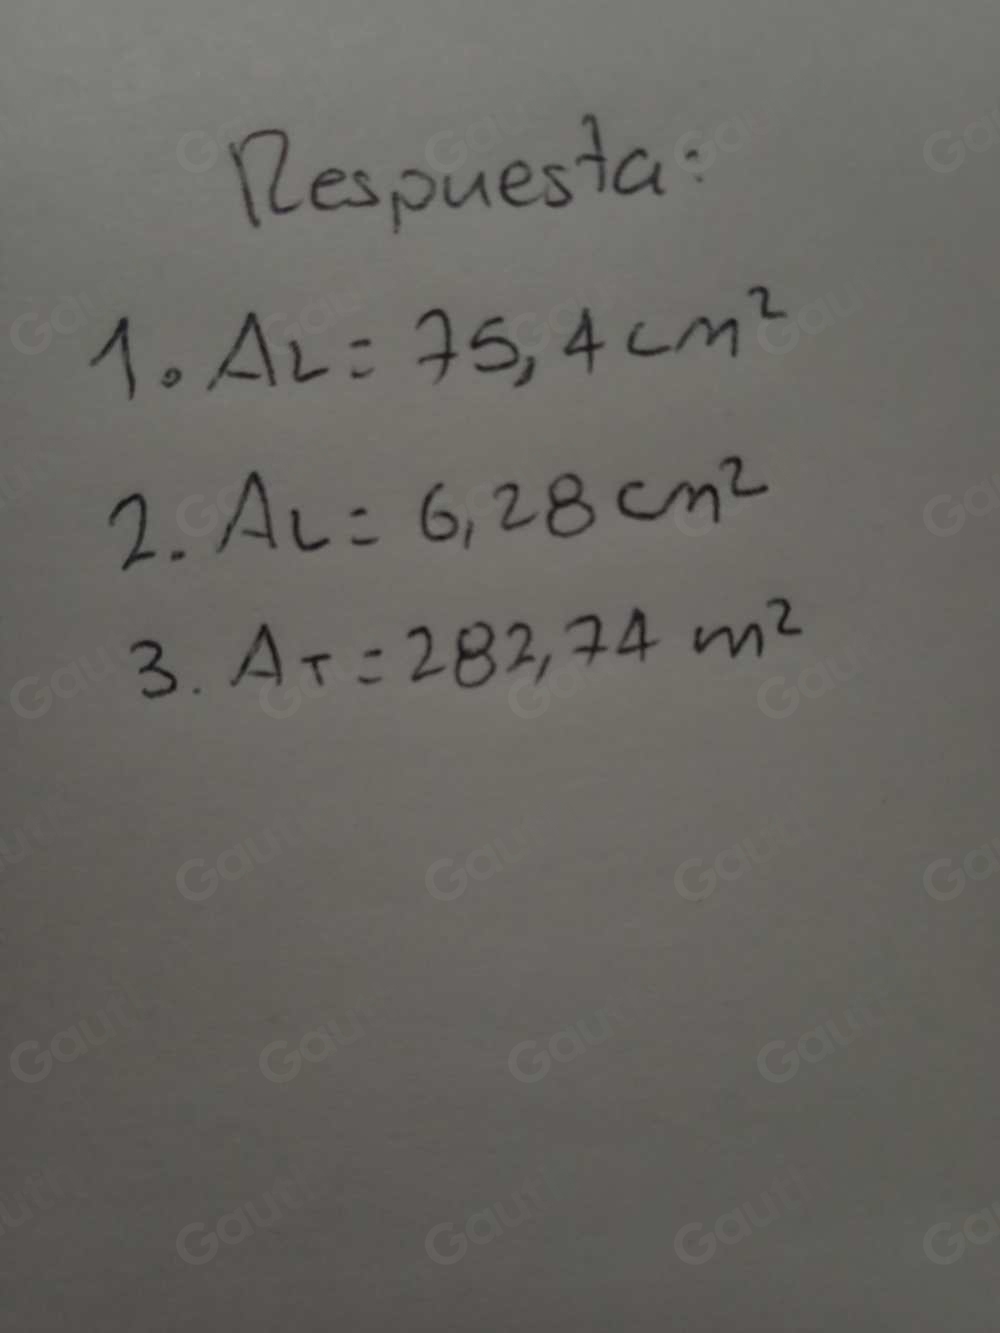 Respuesta:
1. AL = 75,4 cm²
2. AL = 6,28 cm²
3. AT = 282,74 m²